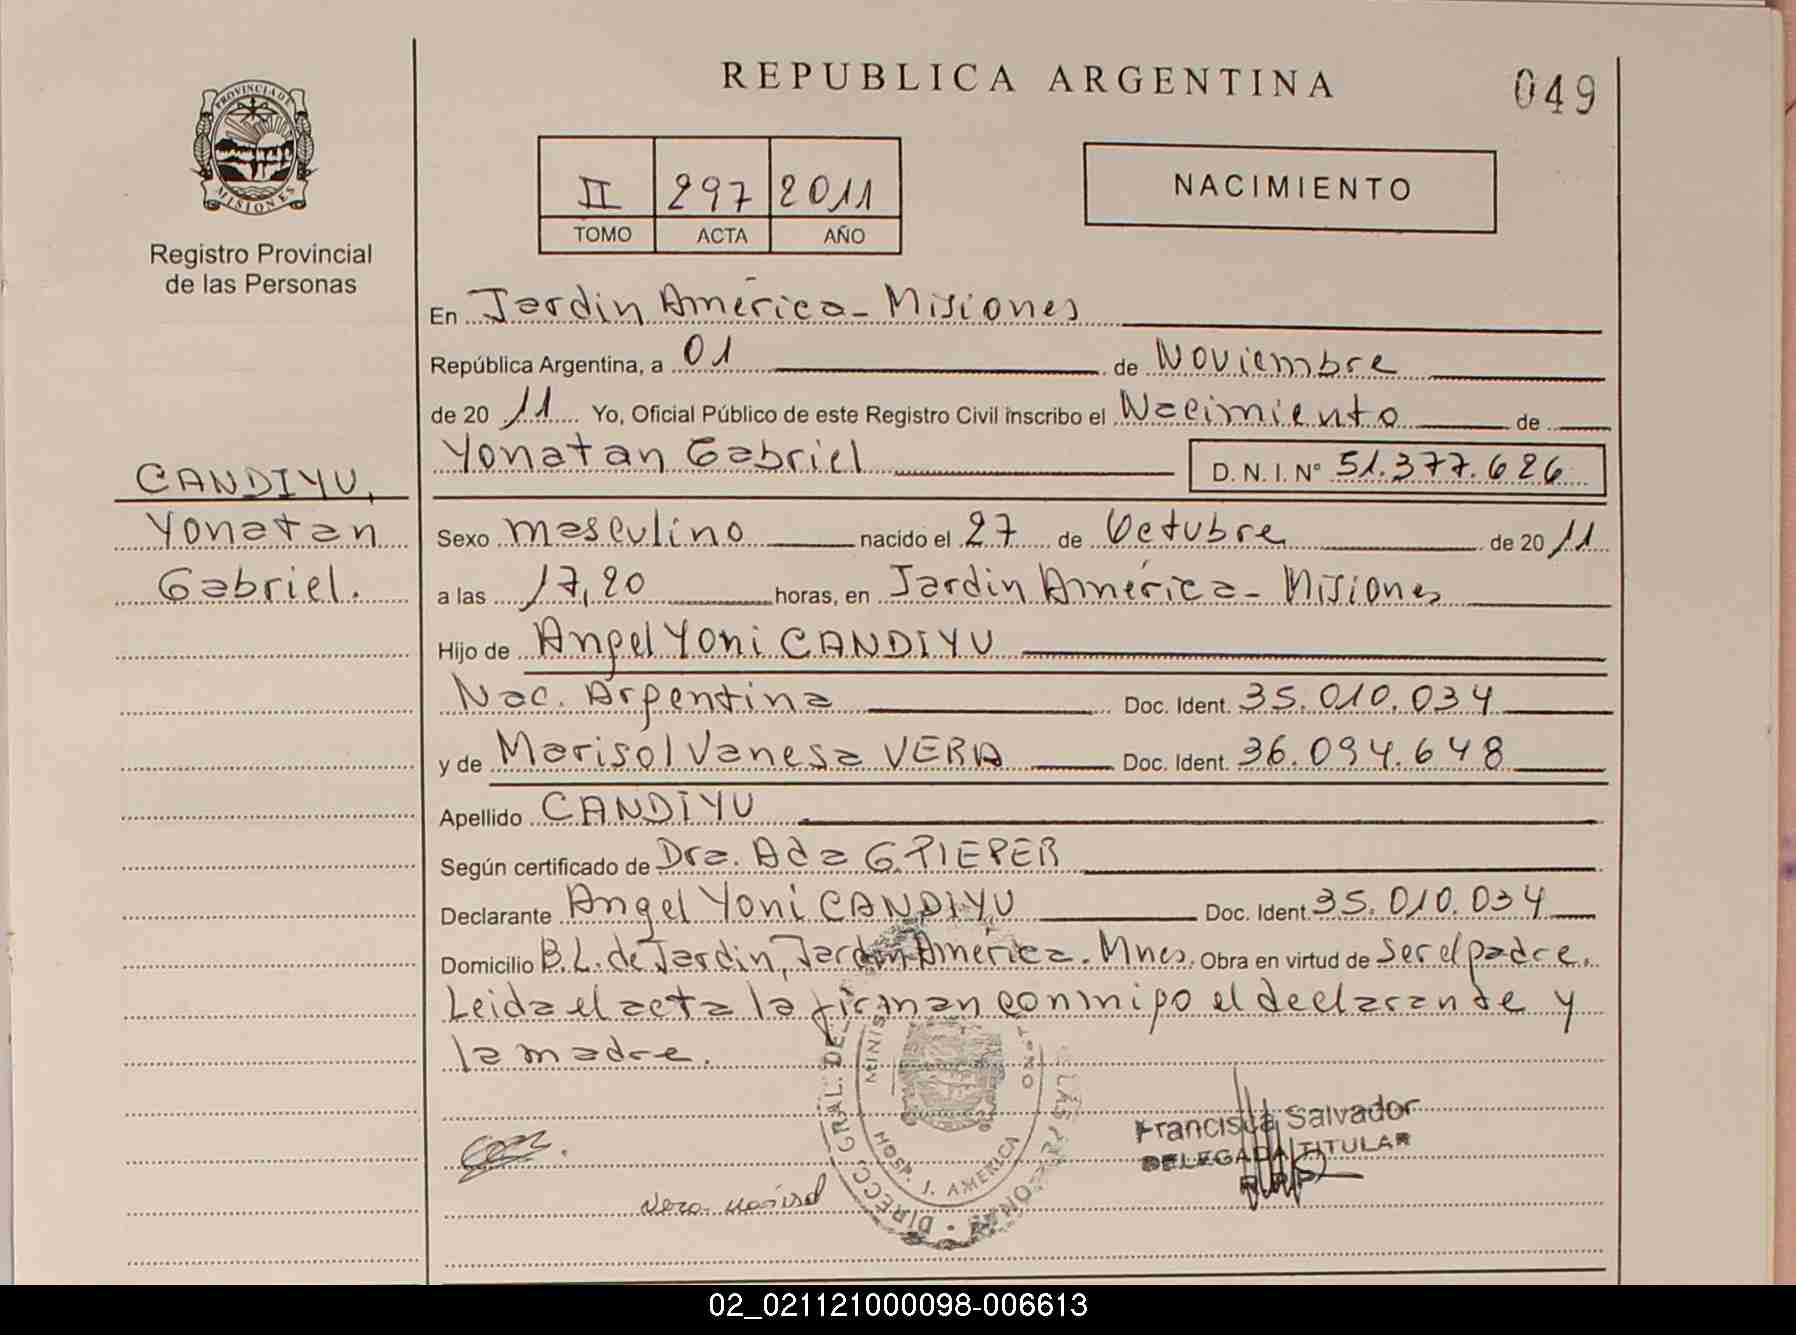 REPUBLICA ARGENTINA
049
PROVINCIA DE
MISIONES
Registro Provincial
de las Personas
II 297 2011
TOMO ACTA AÑO
NACIMIENTO
En Jardin América - Misiones
República Argentina, a 01 de Noviembre
de 20 11 Yo, Oficial Público de este Registro Civil inscribo el Nacimiento de
Yonatan Gabriel D. N. I. N° 51.377.626
CANDIYU,
Yonatan
Gabriel.
Sexo masculino nacido el 27 de Octubre de 20 11
a las 17,20 horas, en Jardin América - Misiones
Hijo de Angel Yoni CANDIYU
Nac. Argentina Doc. Ident. 35.010.034
y de Marisol Vanesa VERA Doc. Ident. 36.094.648
Apellido CANDIYU
Según certificado de Dra. Ada G. PIEPER
Declarante Angel Yoni CANDIYU Doc. Ident. 35.010.034
Domicilio B.L. de Jardin, Jardin América. Mnes. Obra en virtud de Ser el padre.
Leida el acta la firman conmigo el declarante y
la madre.
DIRECC. GRAL. DE LAS
HOSP. J. AMERICA
Francisca Salvador
DELEGADA TITULAR
R.P.P.
Vera Marisol
02_021121000098-006613